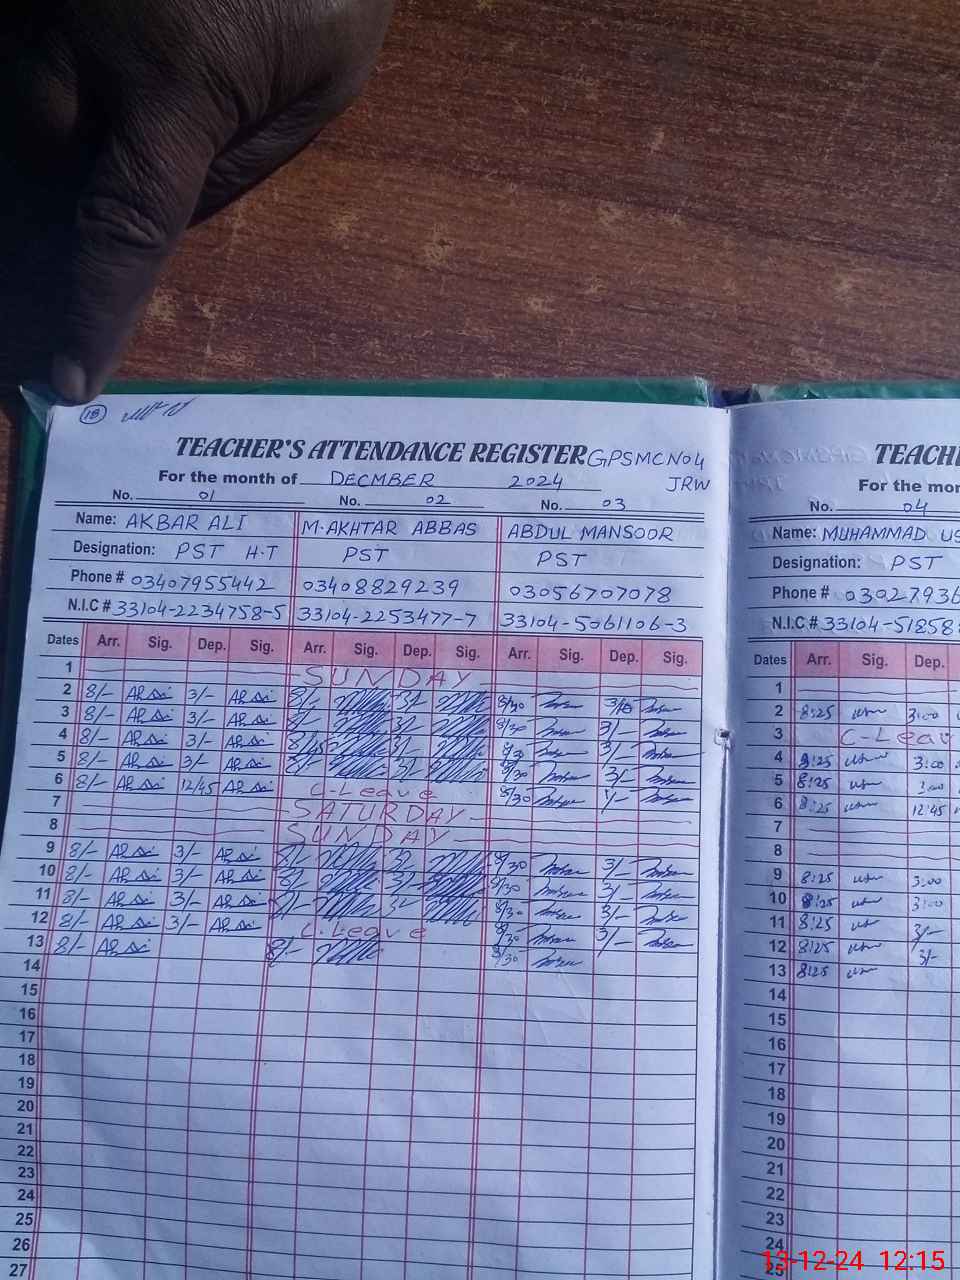 18
TEACHER'S ATTENDANCE REGISTER GPSMC NO4
For the month of DECMBER 2024 JRW
No. 01 No. 02 No. 03
Name: AKBAR ALI M. AKHTAR ABBAS ABDUL MANSOOR
Designation: PST H.T PST PST
Phone # 03407955442 03408829239 03056707078
N.I.C # 33104-2234758-5 33104-2253477-7 33104-5061106-3
Dates Arr. Sig. Dep. Sig. Arr. Sig. Dep. Sig. Arr. Sig. Dep. Sig.
1 SUNDAY
2 8/- 3/- 8/- 3/- 8/30
3 8/- 3/- 8/- 3/- 8/30 3/-
4 8/- 3/- 8/45 8/30 3/-
5 8/- 3/- 8/- 3/- 8/30 3/-
6 8/- 12/45 C-Leave 8/30
7 SATURDAY
8 SUNDAY
9 8/- 3/- 8/- 3/- 8/30 3/-
10 8/- 3/- 8/- 3/- 8/30 3/-
11 8/- 3/- 8/- 3/- 8/30 3/-
12 8/- 3/- C.Leave 8/30 3/-
13 8/- 8/- 8/30
14
15
16
17
18
19
20
21
22
23
24
25
26
27
TEACH
For the mon
No. 04
Name: MUHAMMAD US
Designation: PST
Phone # 0302793
N.I.C # 33104-5185
Dates Arr. Sig. Dep.
1
2 8:25 3:00
3 C-Leav
4 8:25 3:00
5 8:25 3:00
6 8:25 12:45
7
8
9 8:25 3:00
10 8:25 3:00
11 8:25 3/-
12 8:25 3/-
13 8:25
14
15
16
17
18
19
20
21
22
23
24
25
13-12-24 12:15